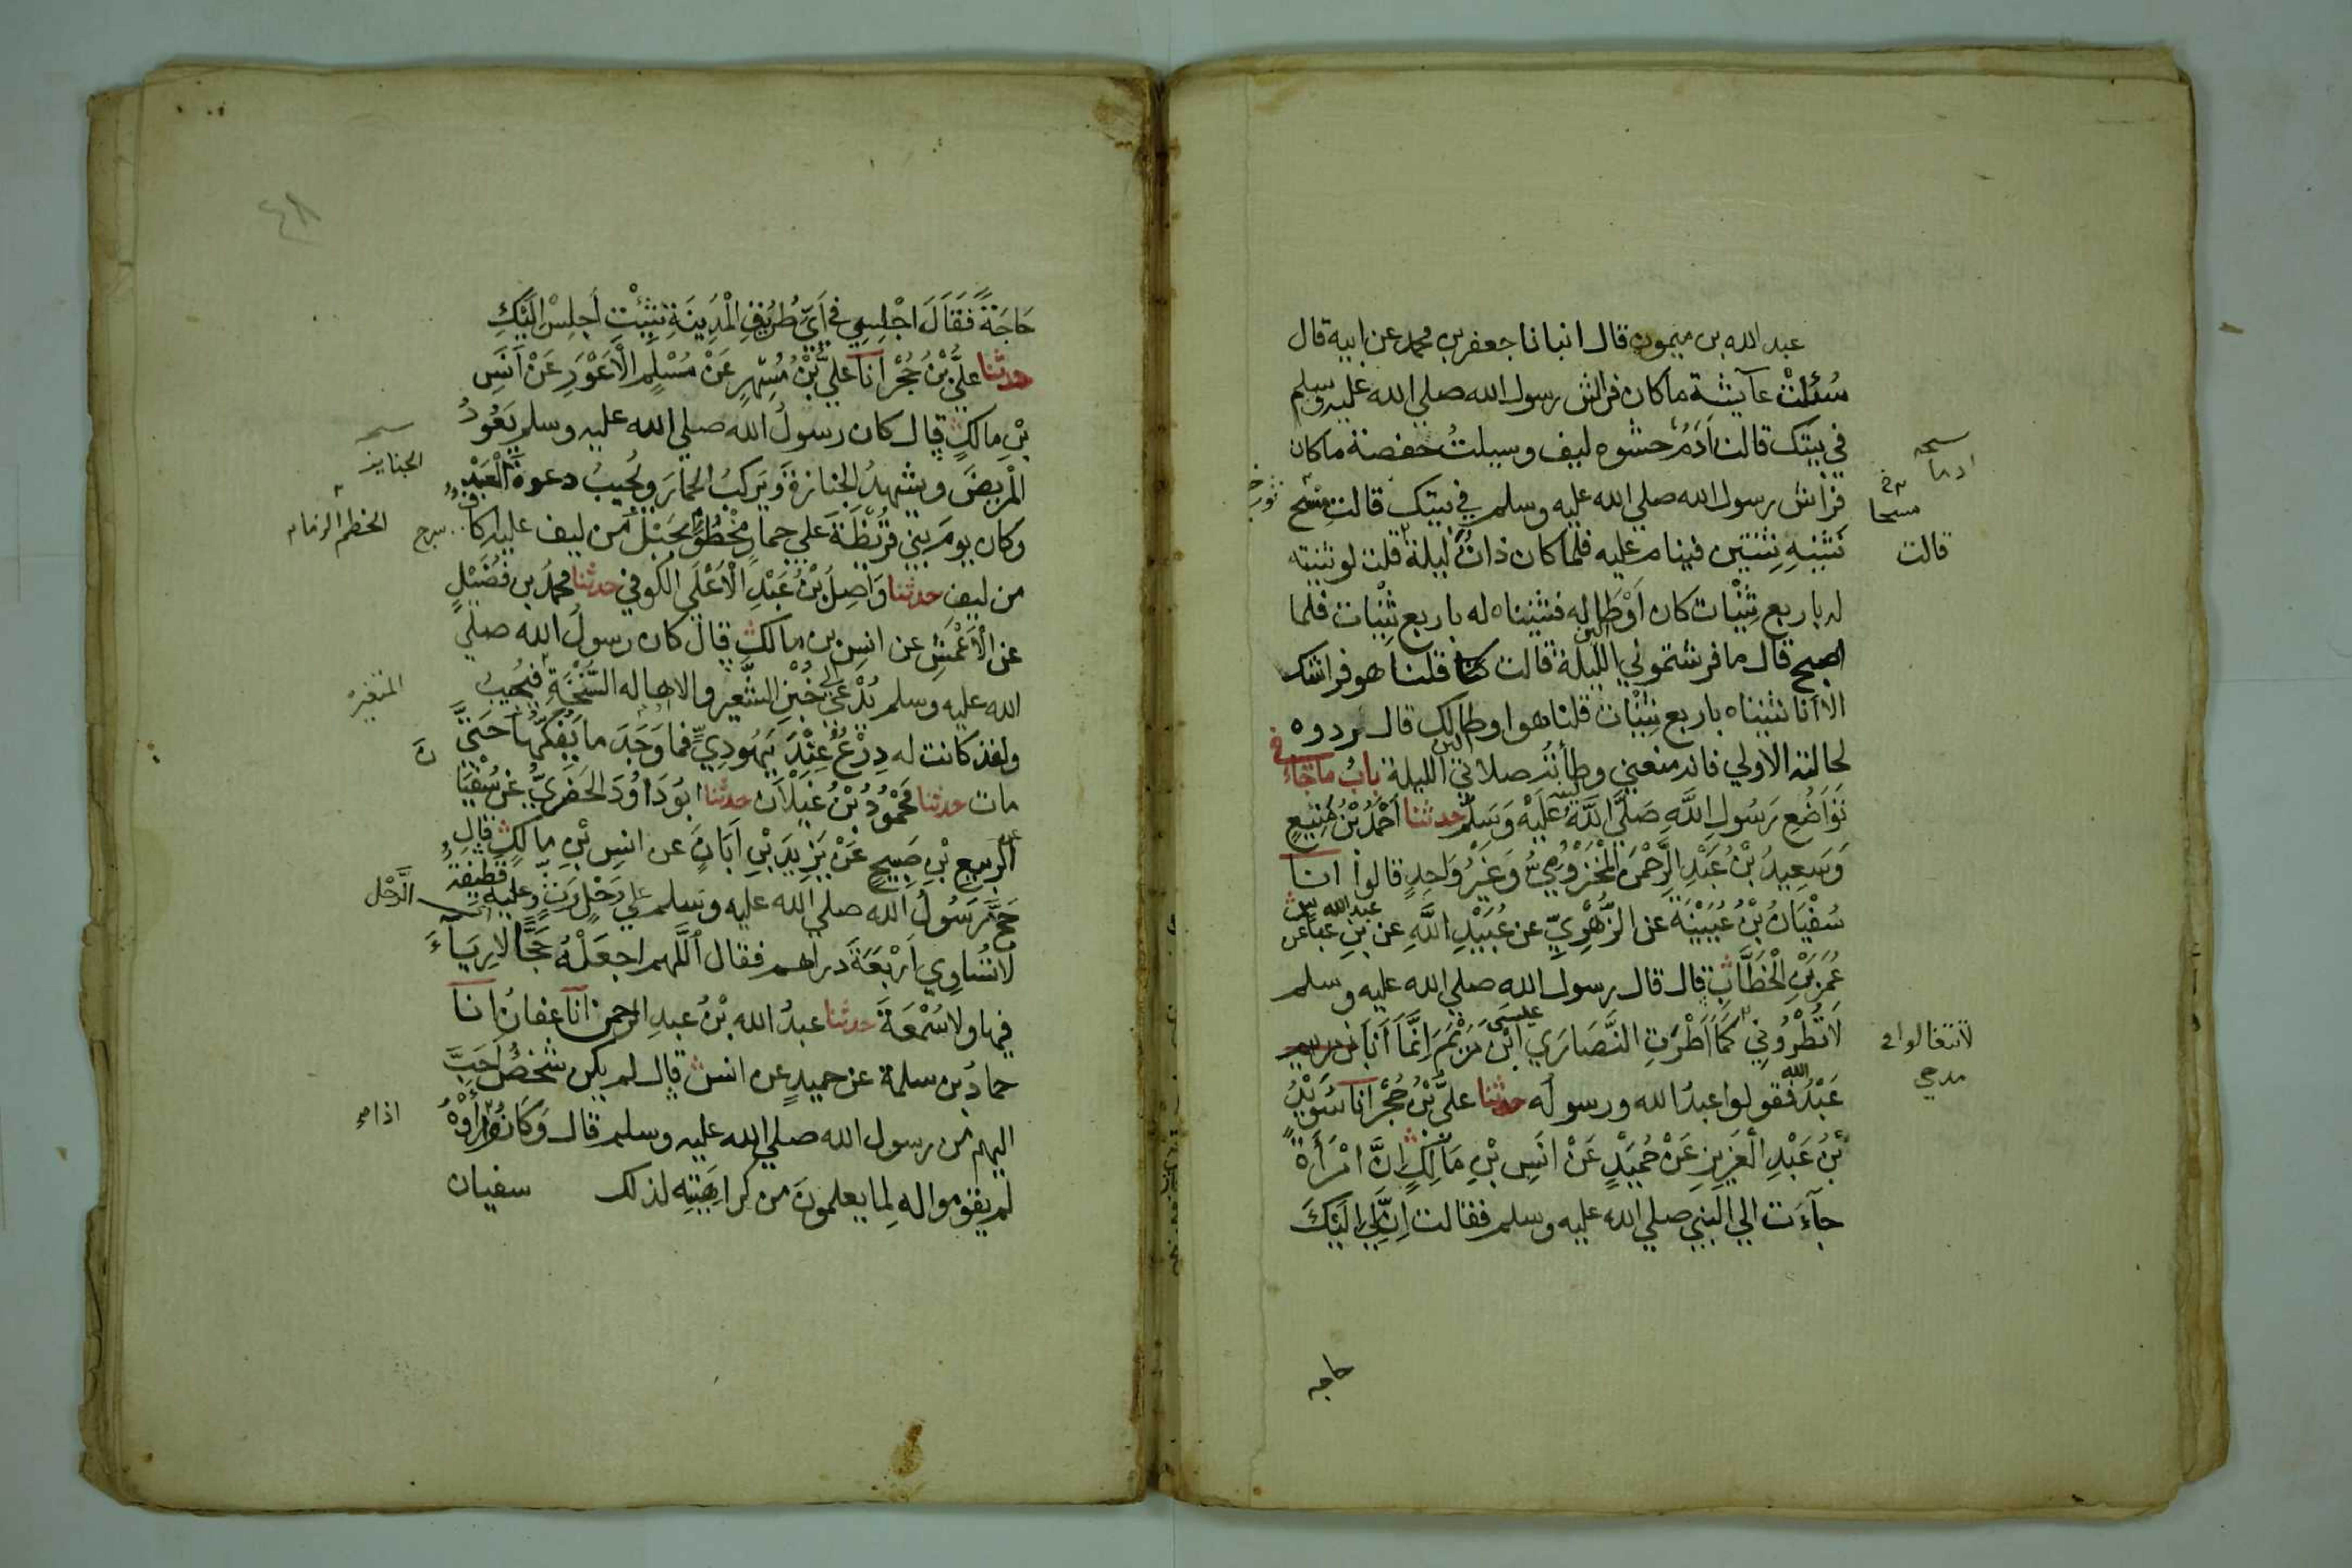 عبد الله بن ميمون قال انبانا جعفر بن محمد عن ابيه قال
سُئلتْ عآيشة ما كان فراش رسول الله صلي الله عليه وسلم
في بيتك قالت اَدَمٌ حشوه ليف وسيلتُ حفصة ما كان
فراش رسول الله صلي الله عليه وسلم في بيتك قالت مِسْح
نَثنِيهِ ثِنْتَين فينام عليه فلما كان ذاتُ ليلة قلت لو ثنيته
له باربع ثِنْيات كان اَوْطَا له فثنيناه له باربع ثِنْيات فلما
اصبح قال ما فرشتموني الليلة قالت قلنا هو فراشك
الا انا ثنيناه باربع ثِنْيات قلنا هو اوطا لك قال ردوه
لحالته الاولي فانه منعني وطأته صلاتي الليلة بابُ ما جاء في
تَوَاضُعِ رَسُولِ اللَّهِ صَلَّي اللَّهُ عَلَيْهِ وَسَلَّم حدثنا اَحْمَدُ بْنُ مَنِيعٍ
وَسَعِيدُ بْنُ عَبْدِ الرَّحْمَنِ الْمَخْزُومِيُّ وَغَيْرُ وَاحِدٍ قالوا انا
سُفْيَانُ بْنُ عُيَيْنَةَ عن الزُّهْرِيِّ عن عُبَيْدِ اللَّهِ عن بنِ عباس عن
عُمَرَ بْنِ الْخَطَّابِ قال قال رسول الله صلي الله عليه وسلم
لَا تُطْرُونِي كَمَا اَطْرَتِ النَّصَارَي ابْنَ مَرْيَمَ اِنَّمَا اَنَا
عَبْدُ الله فقولوا عبدُ الله ورسوله حدثنا عليُّ بْنُ حُجْرٍ انا سُوَيْدُ
بْنُ عَبْدِ الْعَزِيزِ عَنْ حُمَيْدٍ عَنْ اَنَسِ بْنِ مَالِكٍ اِنَّ امْرَأَةً
جآءَت الي النبي صلي الله عليه وسلم فقالت اِنَّ لِي اِلَيْكَ
ادما
مسحا
قالت
لا تتغالوا في
مدحي
حاجه
٤٨
حَاجَةً فَقَالَ اجْلِسِي فِي اَيِّ طُرُقِ الْمَدِينَةِ شِئْتِ اَجْلِسْ اِلَيْكِ
حدثنا عليُّ بْنُ حُجْرٍ انا عليُّ بْنُ مُسْهِرٍ عَنْ مُسْلِمٍ الْاَعْوَرِ عَنْ اَنَسِ
بْنِ مالكٍ قال كان رسولُ الله صلي الله عليه وسلم يَعُودُ
الْمَرِيضَ ويشهدُ الجنازةَ وَيَركبُ الحمارَ ويُجيبُ دعوةَ الْعَبْدِ
وكان يومَ بني قُرَيْظَةَ علي حمارٍ مَخْطُومٍ بِحَبْلٍ من ليف عليه اكاف
من ليفٍ حدثنا وَاصِلُ بْنُ عَبْدِ الْاَعْلَي الكوفي حدثنا محمدُ بن فُضَيْلٍ
عن الْاَعْمَشِ عن انسِ بن مالكٍ قال كان رسولُ الله صلي
الله عليه وسلم يُدْعَي الي خُبْزِ الشَّعِيرِ والاهاله السَّنِخَةِ فيُجيبُ
ولقد كانت له دِرْعٌ عِنْدَ يَهُودِيٍّ فما وَجَدَ ما يَفُكُّهَا حَتَّي
مات حدثنا مَحْمُودُ بْنُ غَيْلَانَ حدثنا ابُو دَاوُدَ الْحَفَرِيُّ عن سُفْيَانَ
عن الرَّبيعِ بْنِ صَبِيحٍ عَنْ يَزِيدَ بْنِ اَبَانَ عن انسِ بْنِ مالكٍ قال
حَجَّ رَسُولُ الله صلي الله عليه وسلم علي رَحْلٍ رَثٍّ وعليه قطيفةٌ
لا تُسَاوِي اَرْبَعَةَ دراهم فقال اللَّهم اجعَلْهُ حَجًّا لا رِيَآءَ
فيها ولا سُمْعَةَ حدثنا عبدُ الله بْنُ عبدِ الرحمن انا عفانُ انا
حمادُ بن سلمة عن حميدٍ عن انس قال لم يكن شخصٌ اَحَبَّ
اليهم من رسول الله صلي الله عليه وسلم قال وَكَانُوا رَأَوْهُ
لم يقوموا له لِما يعلمونَ من كراهيتِهِ لذلك سفيان
الجنايز
الخطم الزمام
المتغيره
الرَّحْل